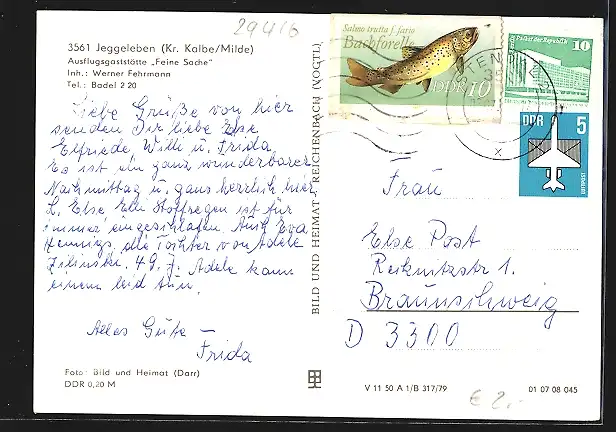 29416
3561 Jeggeleben (Kr. Kalbe/Milde)
Ausflugsgaststätte „Feine Sache"
Inh.: Werner Fehrmann
Tel.: Badel 2 20
Liebe Grüße von hier
senden Dir liebe Else
Elfriede, Willi u. Frida
Es ist ein ganz wunderbarer
Nachmittag u. ganz herrlich hier
L. Else, Elli Stoffregen ist für
immer eingeschlafen. Auch Eva
Hennigs, die Tochter von Adele
Zilinski, 49 J. Adele kann
einem leid tun.
Alles Gute –
Frida
Foto: Bild und Heimat (Darr)
DDR 0,20 M
BILD UND HEIMAT REICHENBACH (VOGTL)
Salmo trutta f. fario
Bachforelle
DDR 10
Palast der Republik
10
DDR 5
LUFTPOST
Frau
Else Post
Reknitzstr 1.
Braunschweig
D 3300
V 11 50 A 1/B 317/79
01 07 08 045
€ 2,-